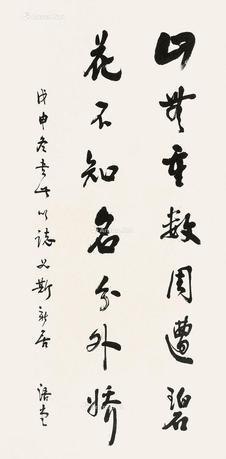 山無重數周遭碧
花不知名分外嬌
戊申冬書此以誌艾斯新居